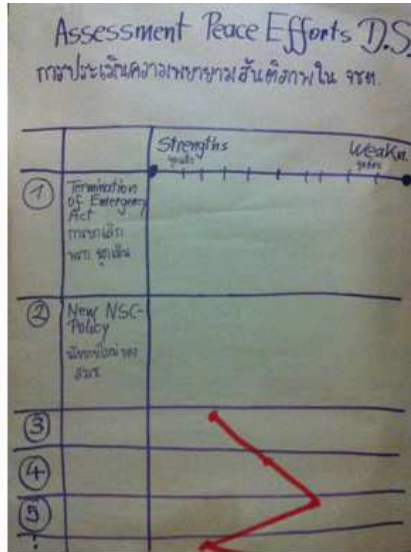 Assessment Peace Efforts D.S.
การประเมินความพยายามสันติภาพใน จชต.
Strengths
จุดแข็ง
Weakn.
จุดอ่อน
1
Termination
of Emergency
Act
การยกเลิก
พรก. ฉุกเฉิน
2
New NSC-
Policy
นโยบายใหม่ของ
สมช.
3
4
5